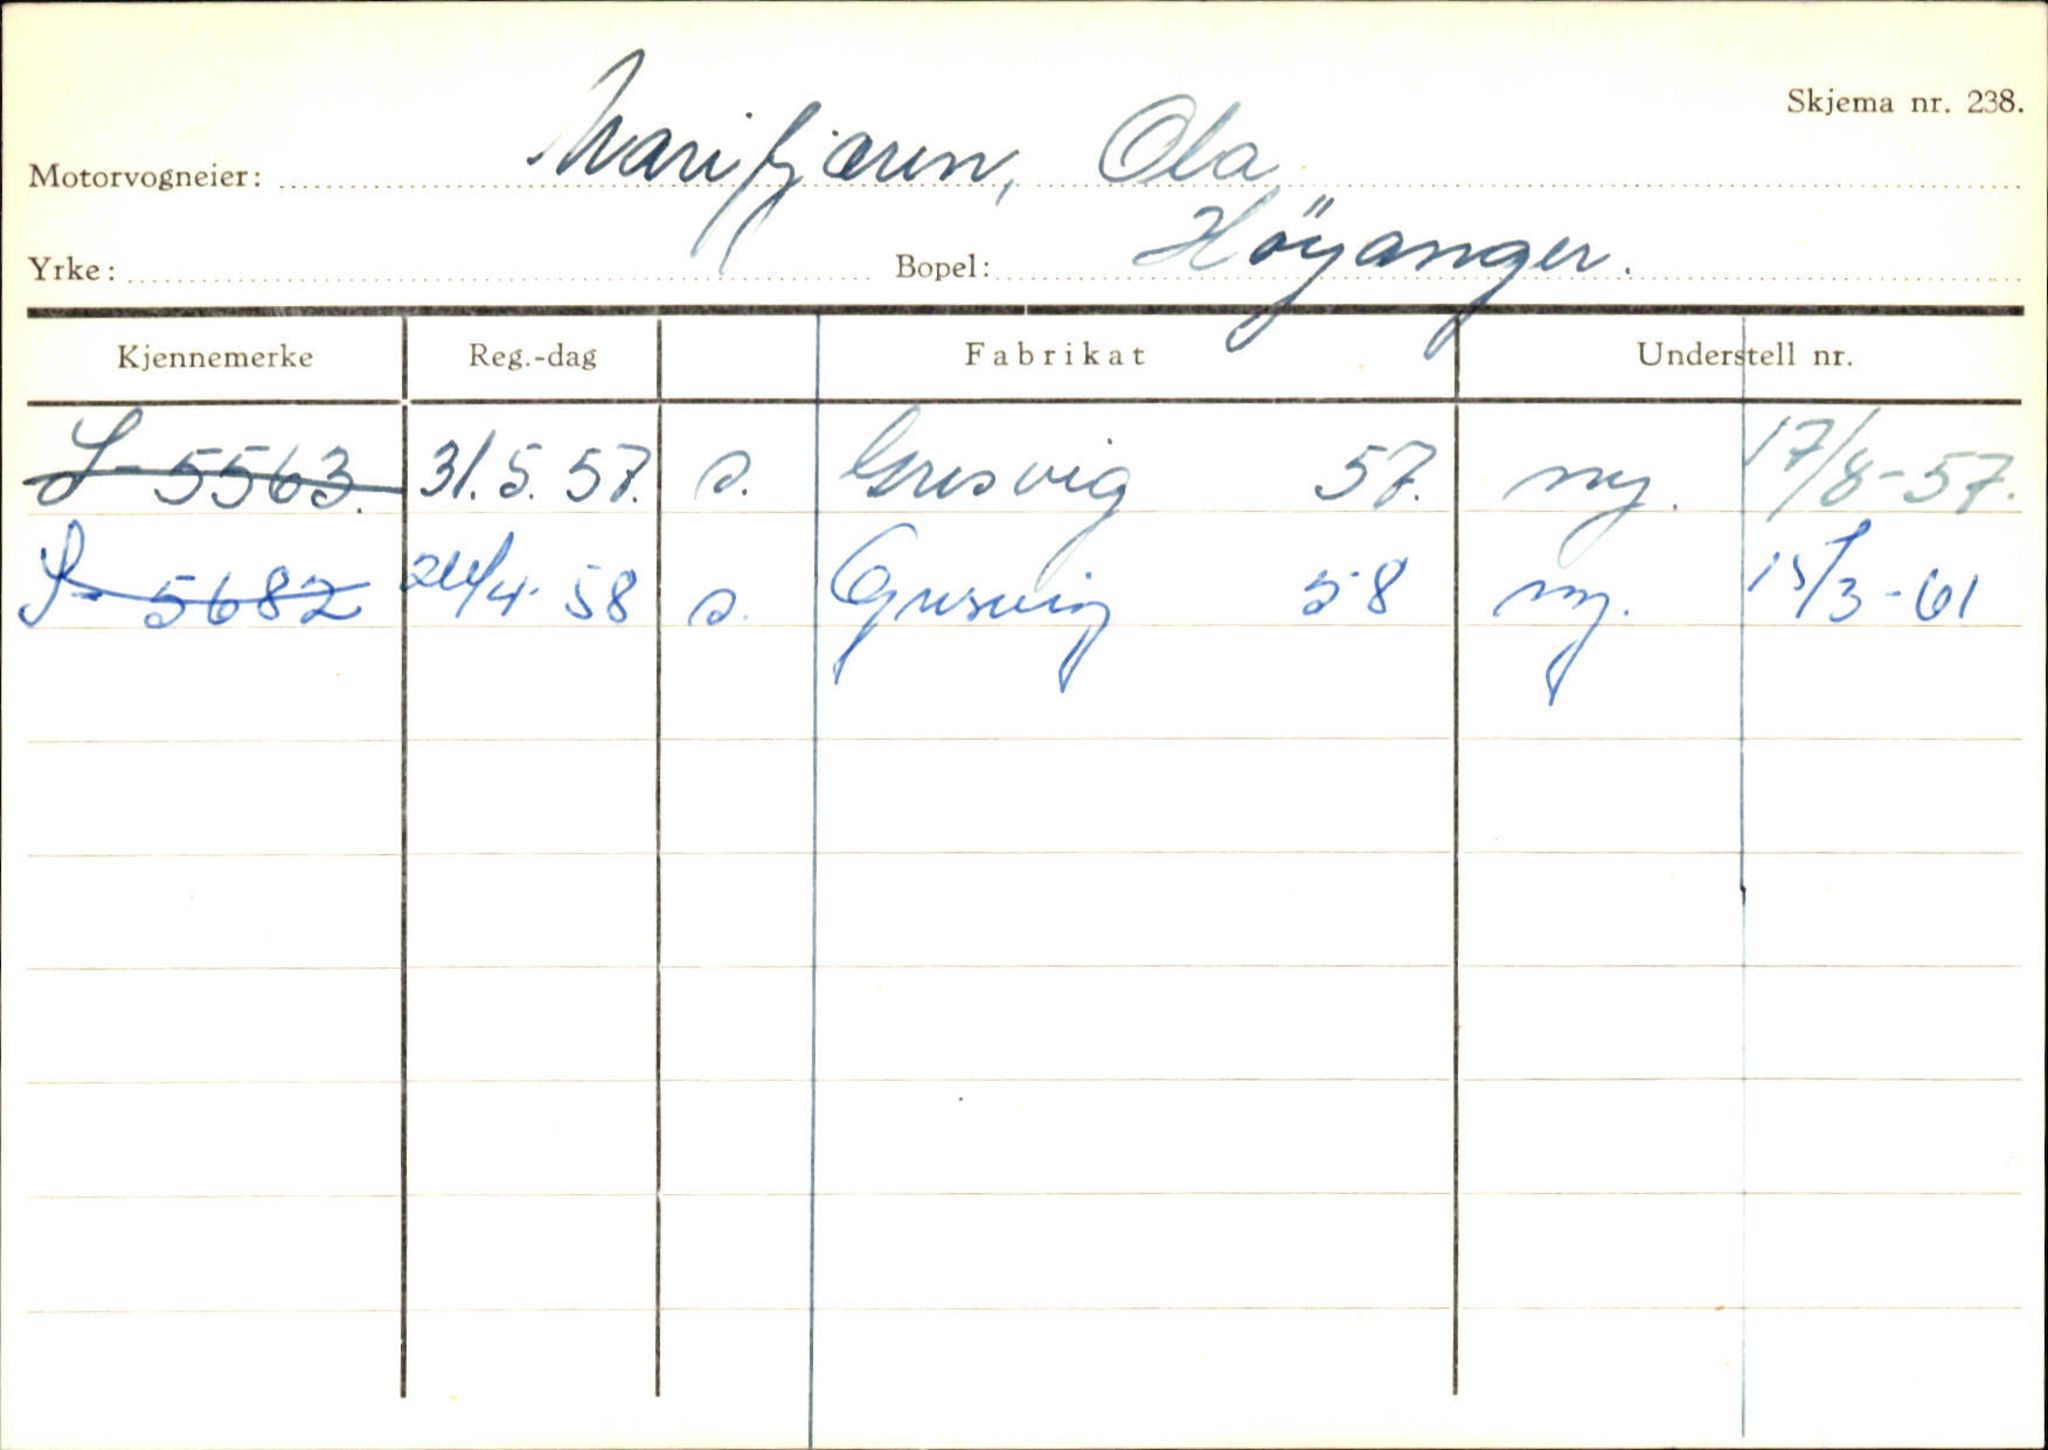 Skjema nr. 238.
Motorvogneier: Marifjæren, Ola
Yrke: Bopel: Höyanger.
Kjennemerke Reg.-dag Fabrikat Understell nr.
S-5563. 31.5.57. s. Gresvig 57. ny. 17/8-57.
S-5682 24/4-58 s. Gresvig 58 ny. 15/3-61